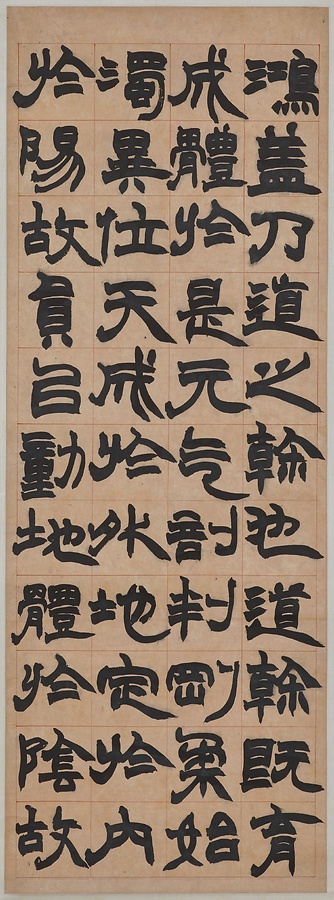 鴻蓋乃道之榦也道榦既育
成體於是元气剖判剛柔始
濁異位天成於外地定於內
於陽故員㠯動地體於陰故